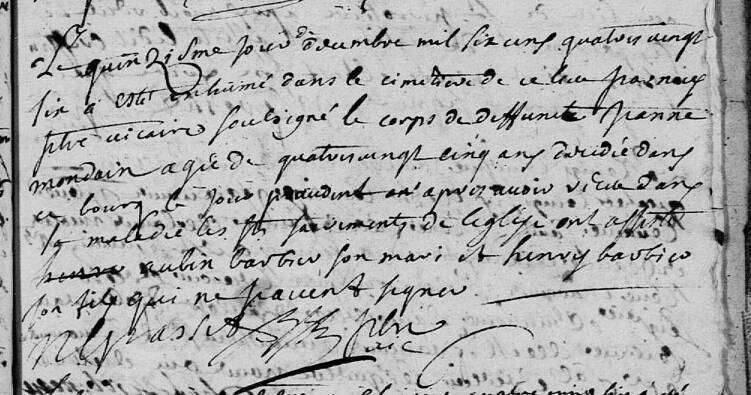 Le quinzisme jour decembre mil six cens quatrevingt
six a esté inhumé dans le cimetiere de ce lieu par moy
pbre vicaire soussigné le corps de deffuncte Jeanne
mondain agée de quatrevingt cinq ans decedée dans
ce bourg le jour precedent apres avoir receu dans
sa maladie les sts sacrements de l'eglise ont assisté
aubin barbier son mari et henry barbier
son fils qui ne scavent signer
pbre
vic